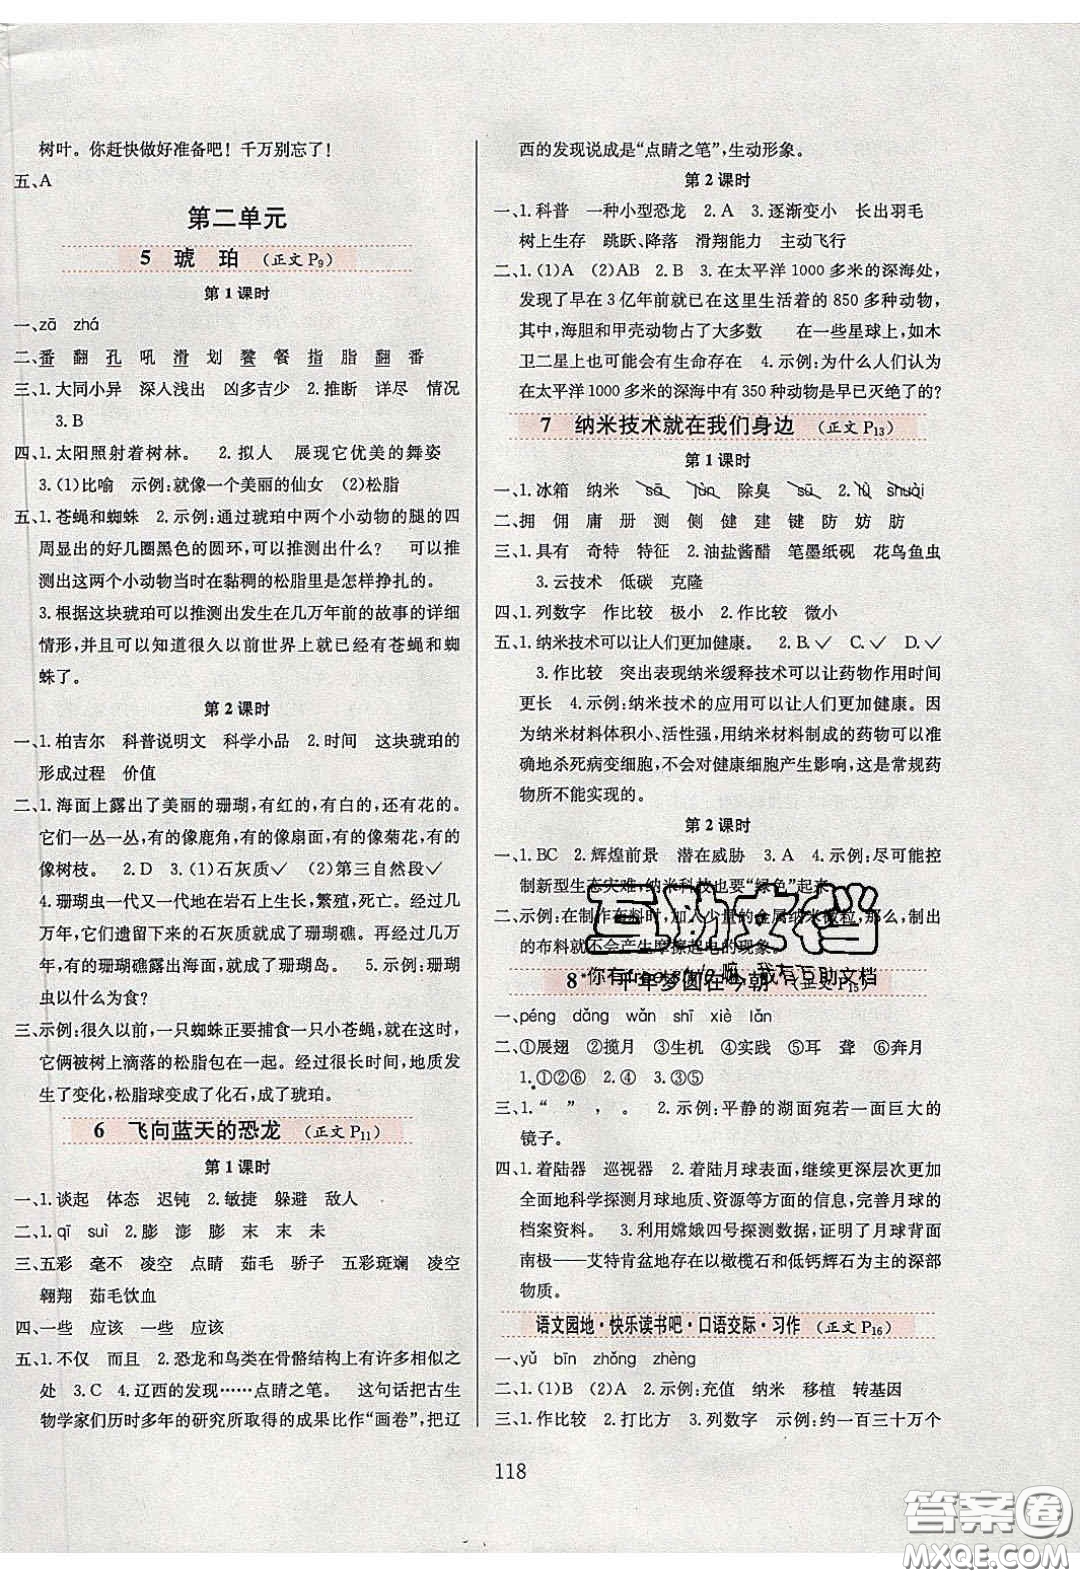 树叶。你赶快做好准备吧！千万别忘了！
五、A
第二单元
5 琥 珀 (正文 P9)
第1课时
一、zā zhá
二、番 翻 孔 吼 滑 划 餐 指 脂 翻 番
三、1.大同小异 深入浅出 凶多吉少 2.推断 详尽 情况
3.B
四、1.太阳照射着树林。 2.拟人 展现它优美的舞姿
3.(1)比喻 示例:就像一个美丽的仙女 (2)松脂
五、1.苍蝇和蜘蛛 2.示例:通过琥珀中两个小动物的腿的四
周显出的好几圈黑色的圆环,可以推测出什么? 可以推
测出这两个小动物当时在黏稠的松脂里是怎样挣扎的。
3.根据这块琥珀可以推测出发生在几万年前的故事的详细
情形,并且可以知道很久以前世界上就已经有苍蝇和蜘
蛛了。
第2课时
一、1.柏吉尔 科普说明文 科学小品 2.时间 这块琥珀的
形成过程 价值
二、1.海面上露出了美丽的珊瑚,有红的,有白的,还有花的。
它们一丛一丛,有的像鹿角,有的像扇面,有的像菊花,有的
像树枝。 2.D 3.(1)石灰质✓ (2)第三自然段✓
4.珊瑚虫一代又一代地在岩石上生长,繁殖,死亡。经过几
万年,它们遗留下来的石灰质变成了珊瑚礁。再经过几
万年,有的珊瑚礁露出海面,成了珊瑚岛。 5.示例:珊瑚
虫以什么为食?
三、示例:很久以前,一只蜘蛛正要捕食一只小苍蝇,突然间,
它俩被树上滴落的松脂包在一起。经过很长时间,地质发
生了变化,松脂球变成了化石,成了琥珀。
6 飞向蓝天的恐龙 (正文 P11)
第1课时
一、1.谈起 体态 迟钝 2.敏捷 躲避 敌人
二、1.qī suì 2.膨 澎 膨 末 末 未
三、五彩 毫不 凌空 点睛 茹毛 骄子 五彩斑斓 凌空
翱翔 茹毛饮血
四、一些 应该 一些 应该
五、1.不仅 而且 2.恐龙和鸟类在骨骼结构上有许多相似之
处 3.C 4.辽西的发现……点睛之笔。 这句话把古生
物学家们历时多年的研究所取得的成果比作“画卷”,把辽
西的发现说成是“点睛之笔”,生动形象。
第2课时
一、1.科普 一种小型恐龙 2.A 3.逐渐变小 长出羽毛
树上生存 跳跃、降落 滑翔能力 主动飞行
二、1.(1)A (2)AB 2.B 3.示例:在太平洋1000多米的深海处,
发现了早在3亿年前就已经在这里生活着的850多种动物,
其中,海胆和甲壳动物占了大多数 在一些星球上,如木
卫二星上也可能会有生命存在 4.示例:为什么人们认为
在太平洋1000多米的深海中有350种动物是早已灭绝了的?
7 纳米技术就在我们身边 (正文 P13)
第1课时
一、1.冰箱 纳米 sā jùn 除臭 sū 2.lǜ shuài
二、拥 佣 庸 册 测 侧 健 建 键 防 妨 肪
三、1.具有 奇特 特征 2.油盐酱醋 笔墨纸砚 花鸟鱼虫
3.云技术 低碳 克隆
四、1.列数字 作比较 极小 2.作比较 微小
五、1.纳米技术可以让人们更加健康。 2.B.✓ C.✓ D.✓
3.作比较 突出表现纳米缓释技术可以让药物作用时间
更长 4.示例:纳米技术的应用可以让人们更加健康。因
为纳米材料体积小、活性强,用纳米材料制成的药物可以准
确地杀死病变细胞,不会对健康细胞产生影响,这是常规药
物所不能实现的。
第2课时
一、1.BC 2.辉煌前景 潜在威胁 3.A 4.示例:尽可能控
制新型生态灾难,纳米科技也要“绿色”起来。
二、示例:在制作布料时,加入少量的金属纳米微粒,那么,制出
的布料就不会产生摩擦起电的现象。
互助文档
你有 嘛,我有互助文档
8* 千年梦圆在今朝 (正文 P15)
一、péng dǎng wǎn shī xiè lǎn
二、①展翅 ②揽月 ③生机 ④实践 ⑤耳 聋 ⑥奔月
1.①②⑥ 2.④ 3.③⑤
三、1.“ ” , 。 2.示例:平静的湖面宛若一面巨大的
镜子。
四、1.着陆器 巡视器 2.着陆月球表面,继续更深层次更加
全面地科学探测月球地质、资源等方面的信息,完善月球的
档案资料。 3.利用嫦娥四号探测数据,证明了月球背面
南极——艾特肯盆地存在以橄榄石和低钙辉石为主的深部
物质。
语文园地·快乐读书吧·口语交际·习作 (正文 P16)
一、yǔ bīn zhǒng zhèng
二、1.(1)B (2)A 2.示例:充值 纳米 移植 转基因
三、1.作比较 2.打比方 3.列数字 示例:约一百三十万个
118
答案圈
MXQE.COM